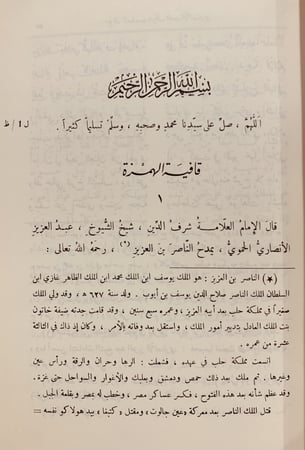 بسم الله الرحمن الرحيم
اللهم ، صل على سيدنا محمد وصحبه ، وسلم تسليماً كثيراً . ل ١ / ظ
قافية الهمزة
١
قال الإمام العلامة شرف الدين ، شيخ الشيوخ ، عبد العزيز
الأنصاري الحموي ، يمدح الناصر بن العزيز (*) ، رحمه الله تعالى :
(*) الناصر بن العزيز : هو الملك يوسف ابن الملك محمد ابن الملك الظاهر غازي ابن
السلطان الملك الناصر صلاح الدين يوسف بن أيوب . ولد سنة ٦٢٧ هـ . وقد ولي الملك
صغيراً في مملكة حلب بعد أبيه العزيز ، وعمره سبع سنين ، وقد قامت جدته ضيفة خاتون
بنت الملك العادل بتدبير أمور الملك ، واستقل بعد وفاته بالأمر . وكان إذ ذاك في الثالثة
عشرة من عمره .
اتسعت مملكة حلب في عهده ، فشملت : الرها وحران والرقة ورأس عين
وغيرها . ثم ملك بعد ذلك حمص ودمشق وبعلبك والأغوار والسواحل حتى غزة .
وقد عظم شأنه بعد هذه الفتوح ، فكسر عساكر مصر ، وخطب له بمصر وبقلعة الجبل .
قتل الملك الناصر بعد معركة « عين جالوت » ومقتل « كتبغا » بيد هولاكو نفسه =